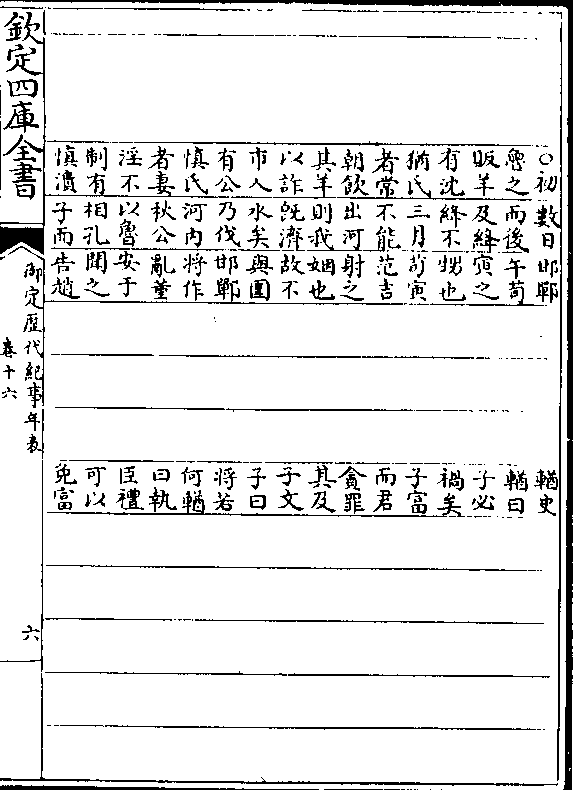 ○初魯之販羊有沈猶氏者常朝飲其羊以詐市人有公慎氏者妻淫不制有慎潰
數日而後及絳絳不三月不能出河則我既濟水矣乃伐河内秋公以魯相孔子而
邯鄲午荀寅之甥也荀寅范吉射之姻也故不與圍邯鄲將作亂董安于聞之告趙
鰌史鰌曰子必禍矣子富而君貪罪其及子文子曰將若何鰌曰執臣禮可以免富
欽定四庫全書
御定歷代紀事年表
卷十六
六